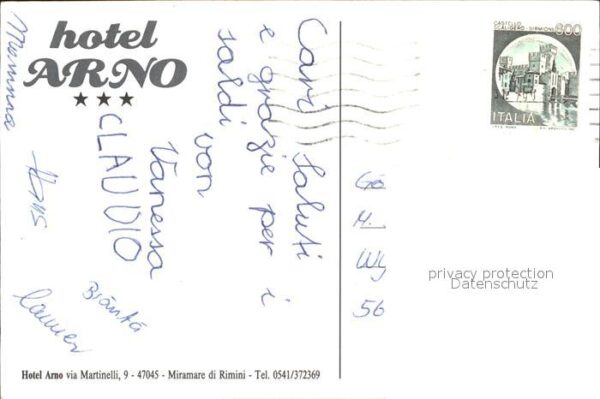 hotel
ARNO
★★★
Cari saluti
e grazie per i
saldi
von
Vanessa
CLAUDIO
Mumma
Hans
Bianka
CASTELLO
SCALIGERO - SIRMIONE
800
ITALIA
Gö
M.
Wy
56
privacy protection
Datenschutz
Hotel Arno via Martinelli, 9 - 47045 - Miramare di Rimini - Tel. 0541/372369